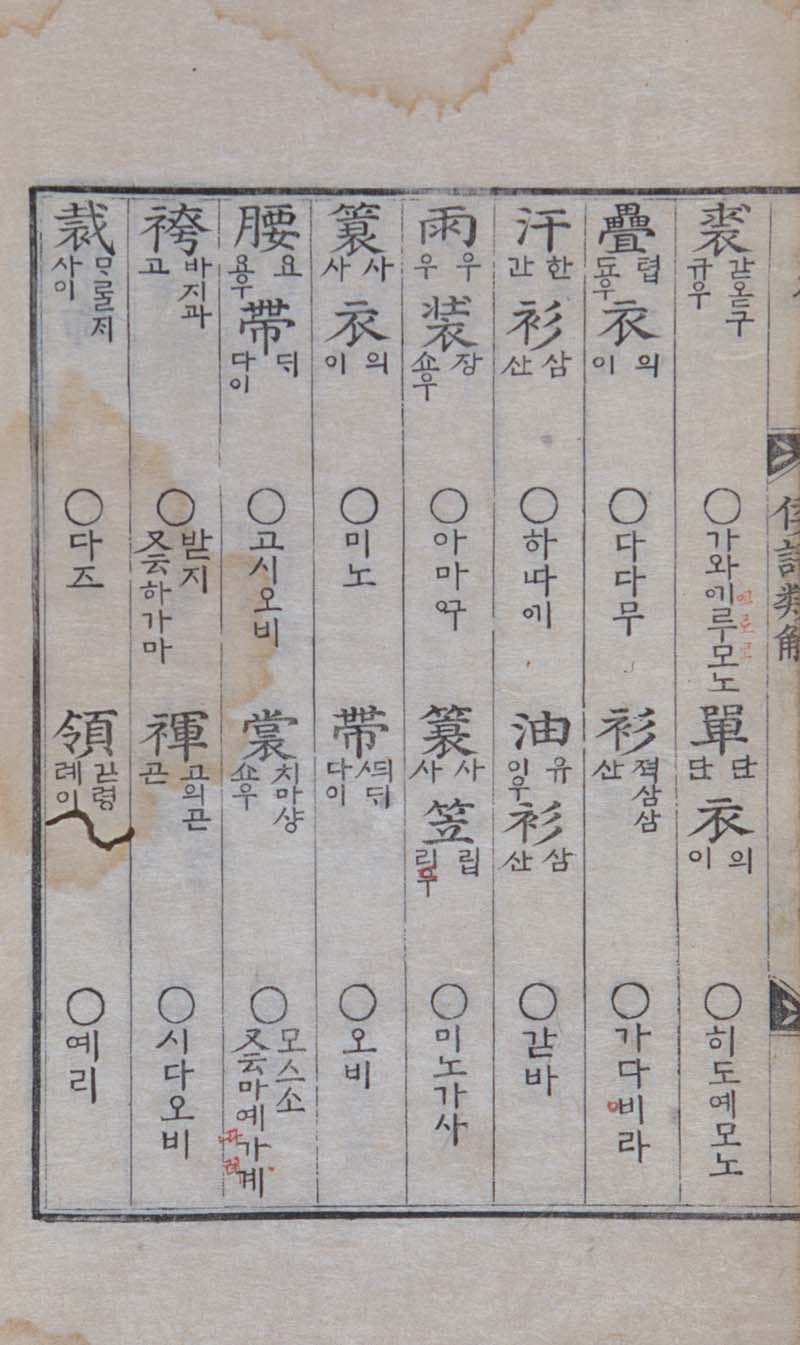 倭語類解
裘 갇옫구 규우 ○가와에루모노 單 단 단 衣 의 이 ○히도예모노
疊 텹 됴우 衣 의 이 ○다다무 衫 젹삼삼 산 ○가다비라
汗 한 간 衫 삼 산 ○하따에 油 유 이우 衫 삼 산 ○갇바
雨 우 우 装 장 쇼우 ○아마 簑 사 사 笠 립 리우 ○미노가사
簑 사 사 衣 의 이 ○미노 帶 ᄯᅴ 다이 ○오비
腰 요 요우 帶 다이 ○고시오비 裳 치마샹 쇼우 ○모스소 又云마예가계
袴 바지과 고 ○받지 又云하가마 褌 고의곤 곤 ○시다오비
裁 ᄆᆞᄅᆞᆯ저 사이 ○다즈 領 긷령 례이 ○예리